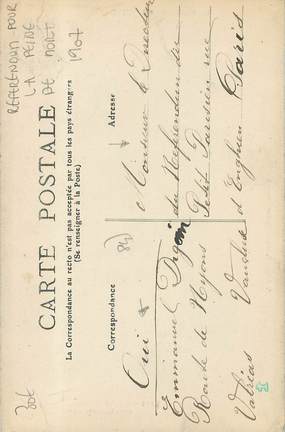 REFERENDUM POUR
LA PEINE
DE MORT
1907
CARTE POSTALE
La Correspondance au recto n'est pas acceptée par tous les pays étrangers
(Se renseigner à la Poste)
Correspondance
Adresse
84)
Oui
Emmanuel Digoin
Route de Nyons
Valréas Vaucluse
Monsieur le Directeur
du Referendum du
Petit Parisien rue
d'Enghien Paris